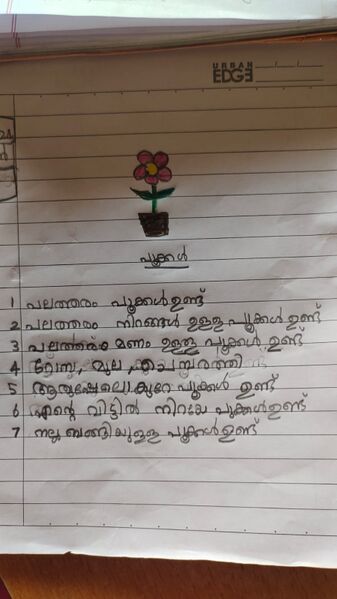 URBAN
EDGE
പൂക്കൾ
1 പലത്തരം പൂക്കൾ ഉണ്ട്
2 പലത്തരം നിറങ്ങൾ ഉള്ള പൂക്കൾ ഉണ്ട്
3 പലത്തരം മണം ഉള്ള പൂക്കൾ ഉണ്ട്
4 റോസ, മുല, ചെമ്പരത്തി
5 കുറേ പൂക്കൾ ഉണ്ട്
6 എന്റെ വിട്ടിൽ നിറയെ പൂക്കൾ ഉണ്ട്
7 നല്ല ബങ്ങിയുള്ള പൂക്കൾ ഉണ്ട്